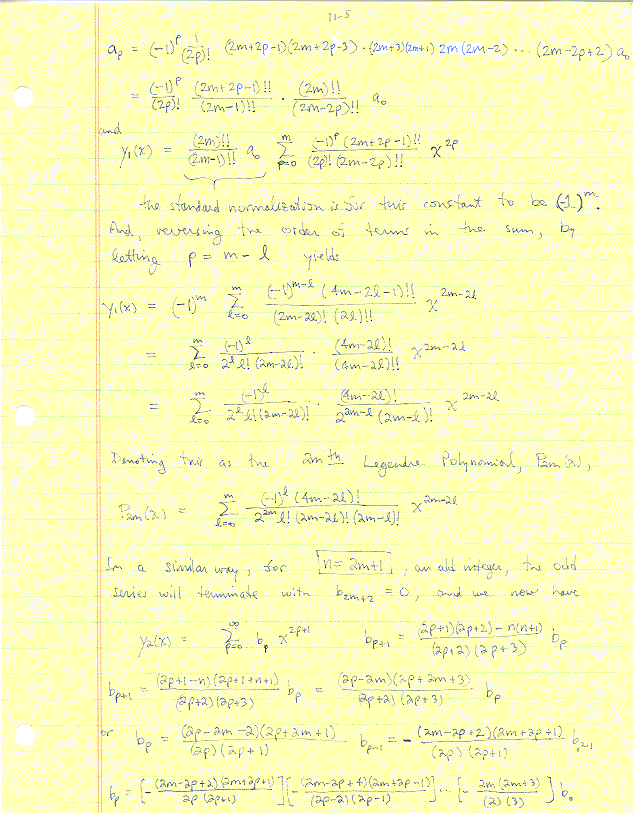 11-5
a_p = (-1)^p 1/(2p)! (2m+2p-1)(2m+2p-3)⋅(2m+3)(2m+1) 2m(2m-2) ⋯ (2m-2p+2) a_0
= (-1)^p/(2p)! (2m+2p-1)!!/(2m-1)!! ⋅ (2m)!!/(2m-2p)!! a_0
and
y_1(x) = (2m)!!/(2m-1)!! a_0 Σ_{p=0}^{m} (-1)^p (2m+2p-1)!!/((2p)! (2m-2p)!!) x^{2p}
the standard normalization is for this constant to be (-1)^m.
And, reversing the order of terms in the sum, by
letting p = m - l yields
y_1(x) = (-1)^m Σ_{l=0}^{m} (-1)^{m-l} (4m-2l-1)!!/((2m-2l)! (2l)!!) x^{2m-2l}
= Σ_{l=0}^{m} (-1)^l/(2^l l! (2m-2l)!) ⋅ (4m-2l)!/(4m-2l)!! x^{2m-2l}
= Σ_{l=0}^{m} (-1)^l/(2^l l! (2m-2l)!) (4m-2l)!/(2^{2m-l} (2m-l)!) x^{2m-2l}
Denoting this as the 2m th Legendre Polynomial, P_{2m}(x),
P_{2m}(x) = Σ_{l=0}^{m} (-1)^l (4m-2l)!/(2^{2m} l! (2m-2l)! (2m-l)!) x^{2m-2l}
In a similar way, for n = 2m+1, an odd integer, the odd
series will terminate with b_{2m+2} = 0, and we now have
y_2(x) = Σ_{p=0}^{∞} b_p x^{2p+1} b_{p+1} = ((2p+1)(2p+2) - n(n+1))/((2p+2)(2p+3)) b_p
b_{p+1} = (2p+1-n)(2p+1+n+1)/((2p+2)(2p+3)) b_p = (2p-2m)(2p+2m+3)/((2p+2)(2p+3)) b_p
or b_p = (2p-2m-2)(2p+2m+1)/((2p)(2p+1)) b_{p-1} = - (2m-2p+2)(2m+2p+1)/((2p)(2p+1)) b_{p-1}
b_p = [- (2m-2p+2)(2m+2p+1)/(2p(2p+1))][- (2m-2p+4)(2m+2p-1)/((2p-2)(2p-1))] ⋯ [- 2m(2m+3)/((2)(3))] b_0